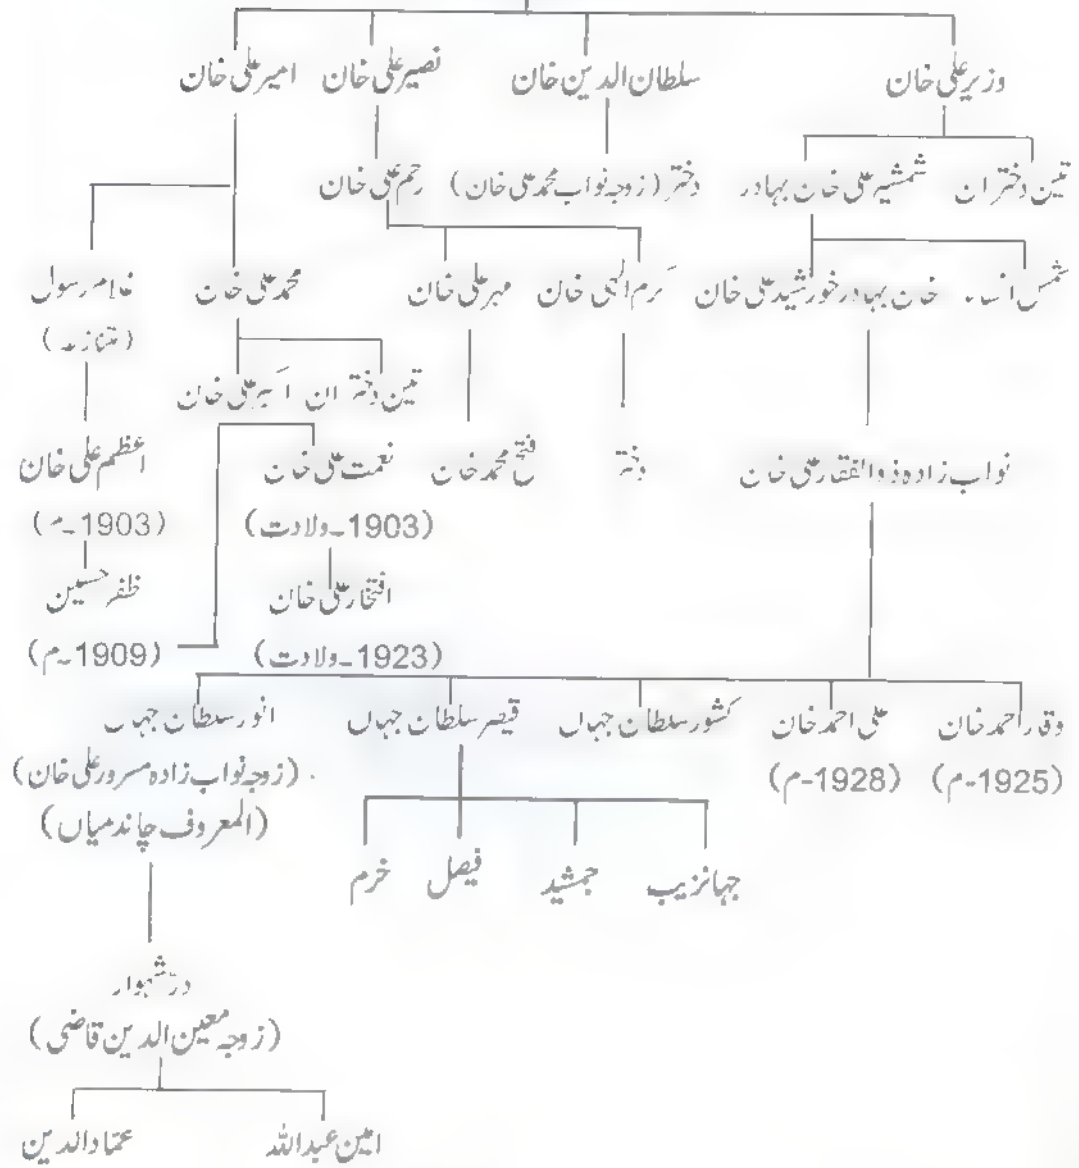 وزیر علی خان سلطان الدین خان نصیر علی خان امیر علی خان
تین دختران شمشیر علی خان بہادر دختر (زوجہ نواب محمد علی خان) رحم علی خان
شمس النساء خان بہادر خورشید علی خان کرم الٰہی خان مہر علی خان محمد علی خان غلام رسول
(متنازعہ)
تین دختران اکبر علی خان
نواب زادہ ذوالفقار علی خان دختر فتح محمد خان نعمت علی خان اعظم علی خان
(1903-ولادت) (1903-م)
افتخار علی خان ظفر حسین
(1923-ولادت) (1909-م)
وقار احمد خان علی احمد خان کشور سلطان جہاں قیصر سلطان جہاں انور سلطان جہاں
(1925-م) (1928-م) (زوجہ نواب زادہ مسرور علی خان)
(المعروف چاند میاں)
جہانزیب جمشید فیصل خرم
درشہوار
(زوجہ معین الدین قاضی)
امین عبداللہ عماد الدین